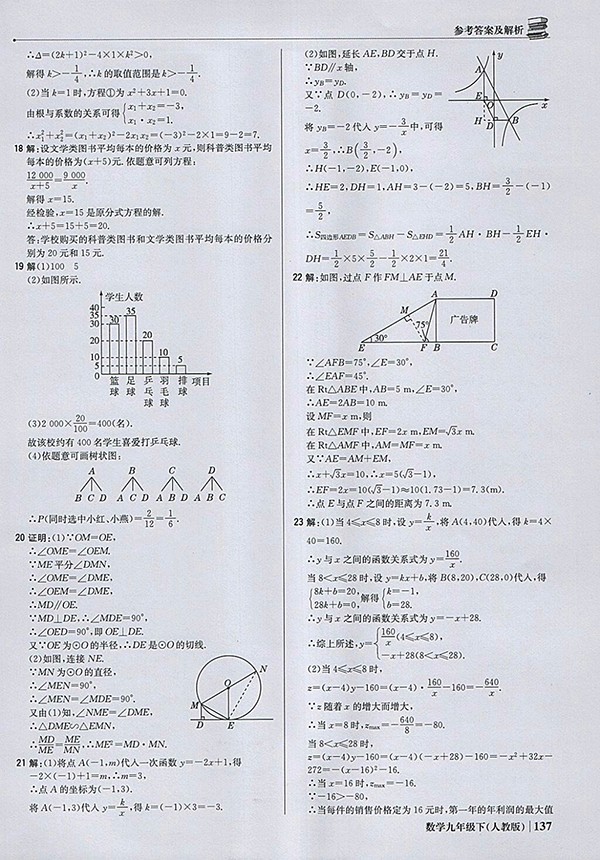 参考答案及解析
∴Δ=(2k+1)²-4×1×k²>0,
解得 k>-1/4,∴k 的取值范围是 k>-1/4.
(2)当 k=1 时,方程①为 x²+3x+1=0.
由根与系数的关系可得{x₁+x₂=-3, x₁·x₂=1.
∴x₁²+x₂²=(x₁+x₂)²-2x₁x₂=(-3)²-2×1=9-2=7.
18 解:设文学类图书平均每本的价格为 x 元,则科普类图书平均
每本的价格为(x+5)元.依题意可列方程:
12 000/(x+5)=9 000/x.
解得 x=15.
经检验,x=15 是原分式方程的解.
∴x+5=15+5=20.
答:学校购买的科普类图书和文学类图书平均每本的价格分
别为 20 元和 15 元.
19 解(1)100 5
(2)如图所示.
学生人数
40
35
30
25
20
15
10
5
0
30 35 20 10 5
篮球 足球 乒乓球 羽毛球 排球 项目
(3)2 000×20/100=400(名).
故该校约有 400 名学生喜爱打乒乓球.
(4)依题意可画树状图:
A B C D
B C D A C D A B D A B C
∴P(同时选中小红、小燕)=2/12=1/6.
20 证明:(1)∵OM=OE,
∴∠OME=∠OEM.
∵ME平分∠DMN,
∴∠OME=∠DME,
∴∠OEM=∠DME,
∴MD∥OE.
∵MD⊥DE,∴∠MDE=90°,
∴∠OED=90°,即 OE⊥DE.
又∵OE 为⊙O 的半径,∴DE 是⊙O 的切线.
(2)如图,连接 NE.
∵MN 为⊙O 的直径,
∴∠MEN=90°,
∴∠MEN=∠MDE=90°.
又由(1)知,∠NME=∠DME,
∴△DME∽△EMN,
∴MD/ME=ME/MN,∴ME²=MD·MN.
N
O
M
D E
21 解:(1)将点 A(-1,m)代入一次函数 y=-2x+1,得
-2×(-1)+1=m,∴m=3,
∴点 A 的坐标为(-1,3).
将 A(-1,3)代入 y=k/x,得 k=(-1)×3=-3.
(2)如图,延长 AE,BD 交于点 H.
∵BD∥x 轴,
∴y_B=y_D.
又∵点 D(0,-2),∴y_B=y_D=
-2.
将 y_B=-2 代入 y=-3/x中,可得
x=3/2,∴B(3/2,-2),
∴H(-1,-2),E(-1,0),
∴HE=2,DH=1,AH=3-(-2)=5,BH=3/2-(-1)
=5/2,
∴S四边形AEDB=S△ABH-S△EHD=1/2AH·BH-1/2EH·
DH=1/2×5×5/2-1/2×2×1=21/4.
y
A
E O x
H D B
22 解:如图,过点 F 作 FM⊥AE 于点 M.
A D
M
广告牌
75°
30°
E F B C
∵∠AFB=75°,∠E=30°,
∴∠EAF=45°.
在 Rt△ABE 中,AB=5 m,∠E=30°,
∴AE=2AB=10 m.
设 MF=x m,则
在 Rt△EMF 中,EF=2x m,EM=√3x m.
在 Rt△AMF 中,AM=MF=x m.
又∵AE=AM+EM,
∴x+√3x=10,∴x=5(√3-1),
∴EF=2x=10(√3-1)≈10(1.73-1)=7.3(m).
∴点 E 与点 F 之间的距离为 7.3 m.
23 解:(1)当 4≤x≤8 时,设 y=k/x,将 A(4,40)代入,得 k=4×
40=160.
∴y 与 x 之间的函数关系式为 y=160/x.
当 8<x≤28 时,设 y=kx+b,将 B(8,20),C(28,0)代入,得
{8k+b=20, 28k+b=0, 解得{k=-1, b=28.
∴y 与 x 之间的函数关系式为 y=-x+28.
∴综上所述,y={160/x(4≤x≤8), -x+28(8<x≤28).
(2)当 4≤x≤8 时,
z=(x-4)y-160=(x-4)·160/x-160=-640/x.
∵z 随着 x 的增大而增大,
∴当 x=8 时,z_max=-640/8=-80.
当 8<x≤28 时,
z=(x-4)y-160=(x-4)(-x+28)-160=-x²+32x-
272=-(x-16)²-16.
∴当 x=16 时,z_max=-16.
∵-16>-80,
∴当每件的销售价格定为 16 元时,第一年的年利润的最大值
数学九年级下(人教版) 137